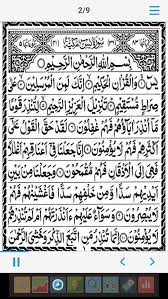 2/9
سُوْرَةُ يٰسٓ مَكِّيَّةٌ
بِسْمِ اللّٰهِ الرَّحْمٰنِ الرَّحِيْمِ
يٰسٓ ۚ وَالْقُرْاٰنِ الْحَكِيْمِ ۙ اِنَّكَ لَمِنَ الْمُرْسَلِيْنَ ۙ عَلٰى
صِرَاطٍ مُّسْتَقِيْمٍ ؕ تَنْزِيْلَ الْعَزِيْزِ الرَّحِيْمِ ۙ لِتُنْذِرَ قَوْمًا
مَّاۤ اُنْذِرَ اٰبَآؤُهُمْ فَهُمْ غٰفِلُوْنَ لَقَدْ حَقَّ الْقَوْلُ عَلٰۤى
اَكْثَرِهِمْ فَهُمْ لَا يُؤْمِنُوْنَ اِنَّا جَعَلْنَا فِيْۤ اَعْنَاقِهِمْ اَغْلٰلًا
فَهِيَ اِلَى الْاَذْقَانِ فَهُمْ مُّقْمَحُوْنَ وَجَعَلْنَا مِنْۢ بَيْنِ
اَيْدِيْهِمْ سَدًّا وَّمِنْ خَلْفِهِمْ سَدًّا فَاَغْشَيْنٰهُمْ فَهُمْ
لَا يُبْصِرُوْنَ وَسَوَآءٌ عَلَيْهِمْ ءَاَنْذَرْتَهُمْ اَمْ لَمْ تُنْذِرْهُمْ
لَا يُؤْمِنُوْنَ اِنَّمَا تُنْذِرُ مَنِ اتَّبَعَ الذِّكْرَ وَخَشِيَ الرَّحْمٰنَ